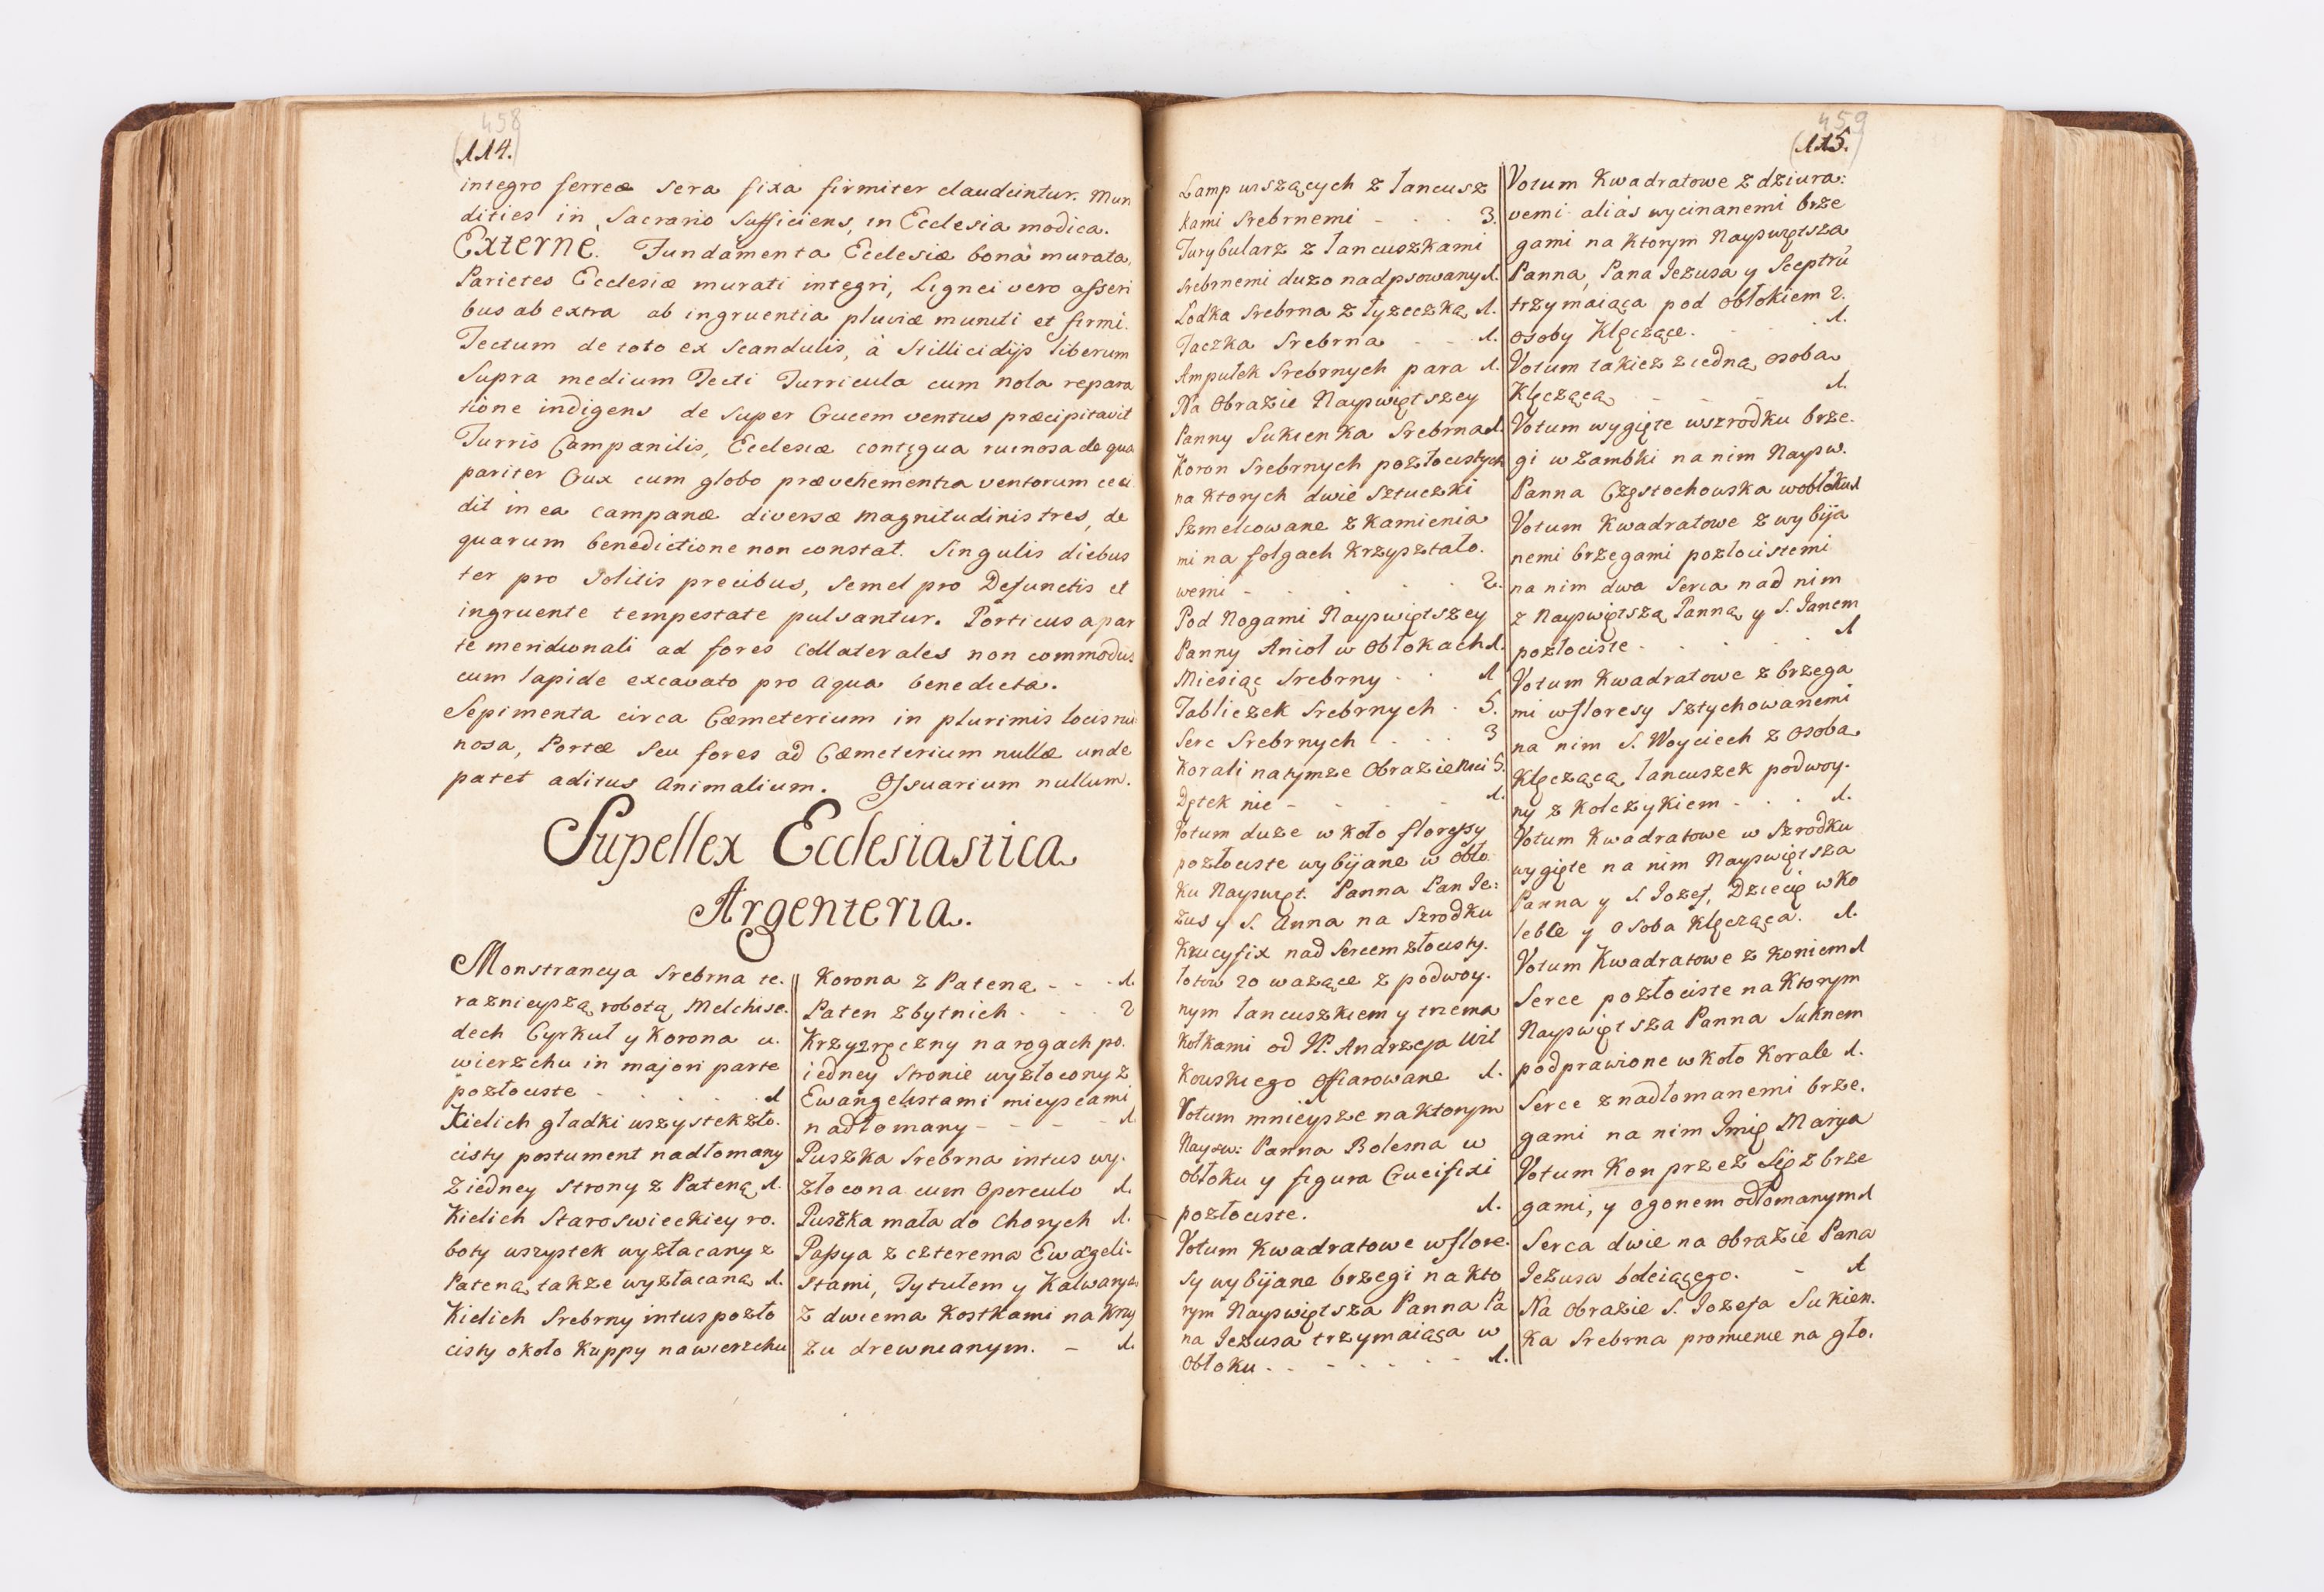 458
114.
integro ferreæ sera fixa firmiter claudeintur. Mun
dities in Sacrario sufficiens, in Ecclesia modica.
Externe. Fundamenta Ecclesiæ bona murata,
Parietes Ecclesiæ murati integri, Lignei vero asseri
bus ab extra ab ingruentia pluviæ muniti et firmi.
Tectum de toto ex Scandulis, à Stillicidijs liberum
Supra medium Tecti Turricula cum nola repara
tione indigens de super Crucem ventus præcipitavit
Turris Campanilis, Ecclesiæ contigua ruinosa de qua
pariter Crux cum globo præ vehementia ventorum ceci
dit in ea campanæ diversæ magnitudinis tres, de
quarum benedictione non constat. Singulis diebus
ter pro Solitis precibus, semel pro Defunctis et
ingruente tempestate pulsantur. Porticus a par
te meridionali ad fores collaterales non commodus
cum lapide excavato pro aqua benedicta.
Sepimenta circa Cœmeterium in plurimis locis rui
nosa, Portæ seu fores ad Cœmeterium nullæ unde
patet aditus Animalium. Ossuarium nullum.
Supellex Ecclesiastica
Argenteria.
Monstrancya Srebrna te.
raznieyszą robotą Melchise.
dech Cyrkuł y Korona u.
wierzchu in majori parte
pozłociste - . . . 1
Kielich gładki wszystek zło.
cisty postument nadłomany
z iedney strony z Pateną 1.
Kielich Staroswieckiey ro.
boty wszystek wyzłacany z
Pateną także wyzłacaną 1.
Kielich Srebrny intus pozło
cisty około Kuppy na wierzchu
Korona z Pateną - - - 1.
Paten zbytnich . . . 2
Krzyż ręczny na rogach po.
iedney stronie wyzłocony z
Ewangelistami mieyscami
nadłomany - - - - 1.
Puszka Srebrna intus wy.
złocona cum Operculo 1.
Puszka mała do Chorych 1.
Passya z czterema Ewãgeli-
stami, Tytułem y Kalwaryą
z dwiema Kostkami na Krzy
żu drewnianym. - 1.
459
115.
Lamp wiszących z łancusz
kami Srebrnemi - . . 3.
Turybularz z łancuszkami
srebrnemi dużo nadpsowany 1.
Łodka Srebrna z łyzeczką 1.
Taczka Srebrna - - 1.
Ampułek Srebrnych para 1.
Na Obrazie Nayświętszey
Panny Sukienka Srebrna 1.
Koron Srebrnych pozłocistych
na ktorych dwie Sztuczki
Szmelcowane z Kamienia
mi na folgach Krzyształo.
wemi - . . . . 2.
Pod Nogami Nayświętszey
Panny Anioł w Obłokach 1.
Miesiąc Srebrny . . 1
Tabliczek Srebrnych . 5.
Serc Srebrnych - . . . 3
Korali na tymże Obrazie Nici 5.
Dętek nic - . . - 1.
Votum duże w koło floresy
pozłociste wybijane w obło
ku Nayswięt. Panna Pan Je:
zus y S. Anna na Szrodku
Krucyfix nad Sercem złocisty.
łotow 20 ważące z podwoy.
nym łancuszkiem y trzema
kołkami od JP. Andrzeja Wil
kowskiego Offiarowane 1.
Votum mnieysze na ktorym
Naysw: Panna Bolesna w
obłoku y figura Crucifixi
pozłociste. 1.
Votum Kwadratowe w flore.
sy wybijane brzegi na kto
rym Nayświętsza Panna Pa
na Jezusa trzymaiąca w
Obłoku . . - - . . - 1.
Votum Kwadratowe z dziura:
vemi alias wycinanemi brze
gami na ktorym Nayświętsza
Panna, Pana Jezusa y Sceptrũ
trzymaiąca pod obłokiem 2.
osoby Klęczące. - . . 1.
Votum takież z iedną osobą
Klęczącą - - - 1.
Votum wygięte wszrodku brze.
gi w Zambki na nim Nayśw.
Panna Częstochowska w obłoku 1
Votum Kwadratowe z wybija
nemi brzegami pozłocistemi
na nim dwa Serca nad nim
z Nayświętszą Panną y S. Janem
pozłociste . . . . . 1
Votum Kwadratowe z brzega
mi w floresy sztychowanemi
na nim S. Woyciech z osobą
Klęczącą łancuszek podwoy.
ny z kolczykiem - . . 1.
Votum Kwadratowe w Szrodku
wygięte na nim Nayświętsza
Panna y S. Jozef, Dziecię w Ko
lebce y osoba Klęcząca. 1.
Votum Kwadratowe z koniem 1
Serce pozłociste na ktorym
Nayświętsza Panna Suknem
podprawione w koło Korale 1.
Serce z nadłomanemi brze.
gami na nim Imię Marya
Votum Kon przez Się z brze
gami, y ogonem odłomanym 1
Serca dwie na Obrazie Pana
Jezusa boleiącego. - 1
Na Obrazie S. Jozefa Sukien.
ka Srebrna promienie na gło.